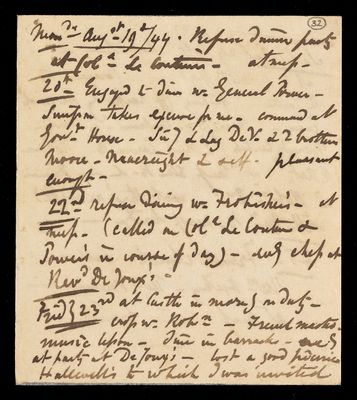 32
Aug^st 19^t/44. Refuse dinner party
at Col^l Le Couteur - at mess -
20^th Engaged to dine w. General Power -
Simpson takes excuse for me - command at
Gov^nt House - & 2 brothers
Moore - 2 self - pleasant
enough -
22^nd refuse dining w. - at
mess - (called on Col^l Le Couteur &
Power's in course of day) - eve^g chess at
Rev^d De Joux's -
Frid^y 23^rd at Castle in morn^g on duty -
w. Rob^n - French master -
music lesson - dine in barracks - eve^g
at party at De Joux's - lost a good picnic
Halliwell's to which I was invited